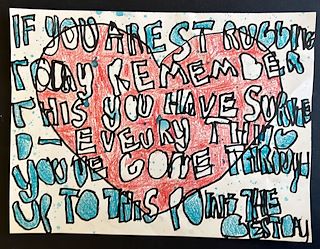 IF YOU ARE STRUGGLING
TODAY REMEMBER
THIS YOU HAVE SURVIVE
D- EVEURY THING
YOU'VE COME THROUGH
UP TO THIS POINT THE